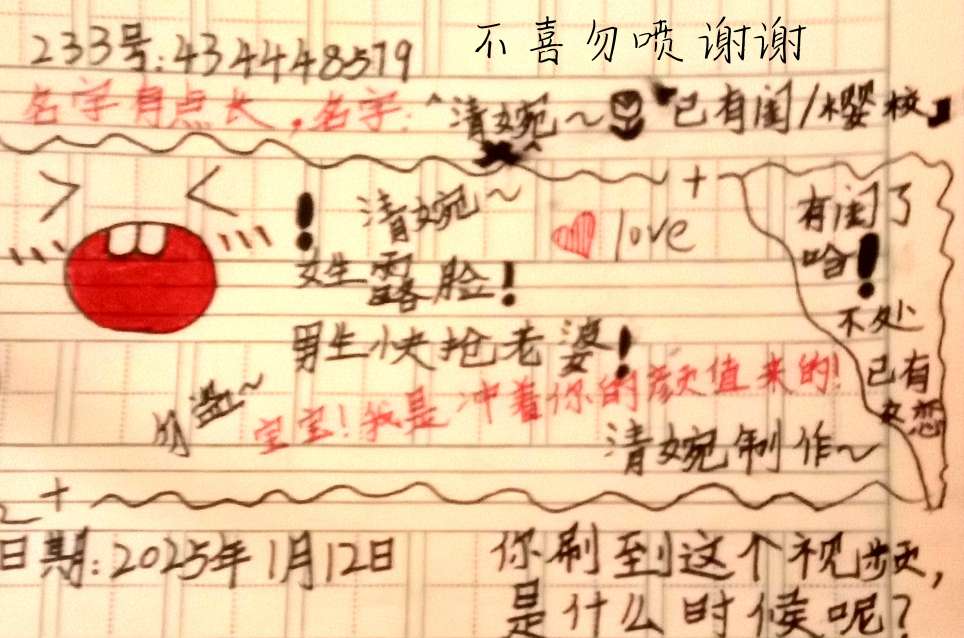 不喜勿喷谢谢
233号:434448579
名字有点长,名字:“清婉~已有闺/樱校”
清婉~
love
女生露脸!
男生快抢老婆!
宝宝!我是冲着你的颜值来的!
勿盗~
清婉制作~
有闺了
哈!
不处
已有
恋
日期:2025年1月12日
你刷到这个视频,
是什么时候呢?